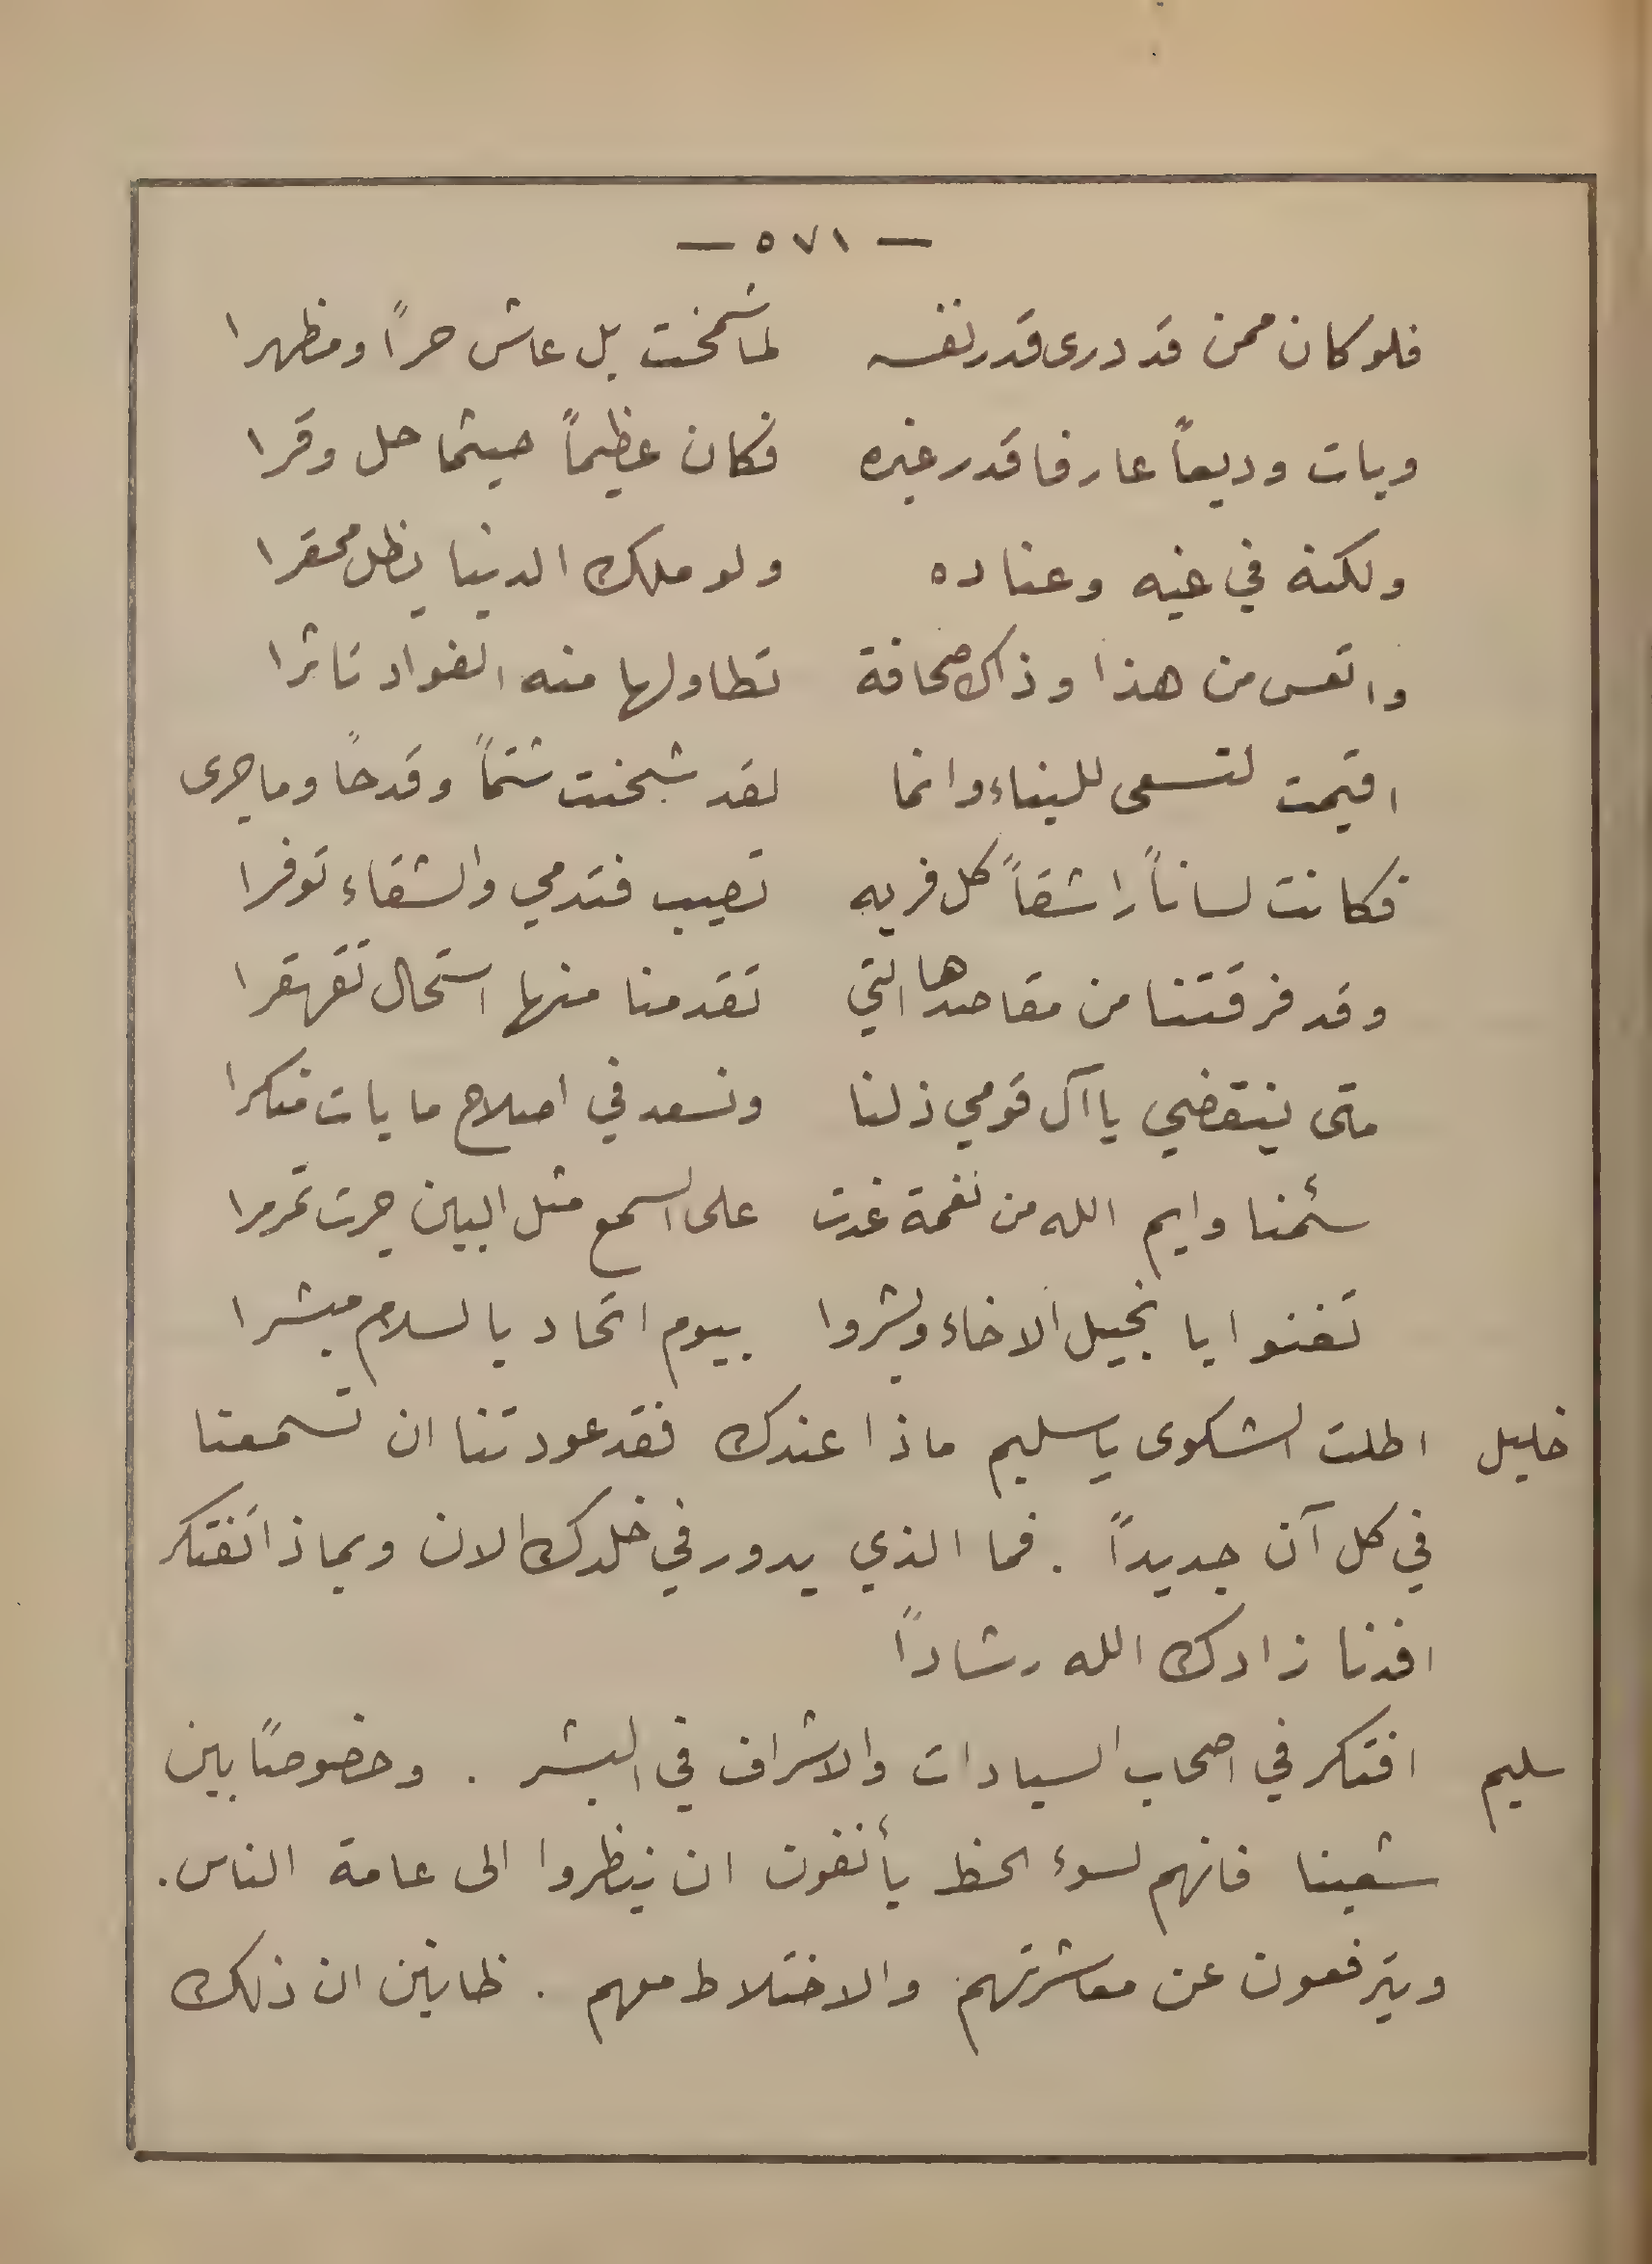 — ٥٧١ —
فلو كان ممن قد درى قدر نفسه لما شمخت بل عاش حراً ومظهرا
وبات وديعاً عارفا قدر غيره فكان عظيماً حيثما حل وقرا
ولكنه في غيه وعناده ولو ملك الدنيا يظل محقرا
واتعس من هذا وذاك صحافة تطاولها منه الفواد تاثرا
اقيمت لتسعى للبناء وانما لقد شبخت شتماً وقدحاً وما جرى
فكانت لساناً راشقاً كل فريه تصيب فتدمي والشقاء توفرا
وقد فرقتنا من مقاصدها التي تقدمنا منها استحال تقهقرا
متى ينقضي يا آل قومي ذلنا ونسعد في اصلاح ما بات منكرا
سئمنا وايم الله من نغمة غدت على السمع مثل البين جرت تمرمرا
تغنوا يا نجيل الاخاء وبشروا بيوم اتحاد بالسلام مبشرا
خليل اطلت الشكوى يا سليم ماذا عندك فقد عودتنا ان تسمعنا
في كل آن جديداً . فما الذي يدور في خلدك الان وبماذا تفتكر
افدنا زادك الله رشاداً
سليم افتكر في اصحاب السيادات والاشراف في البشر . وخصوصاً بين
شعبنا فانهم لسوء الحظ يأنفون ان ينظروا الى عامة الناس .
ويترفعون عن معاشرتهم والاختلاط معهم . ظانين ان ذلك